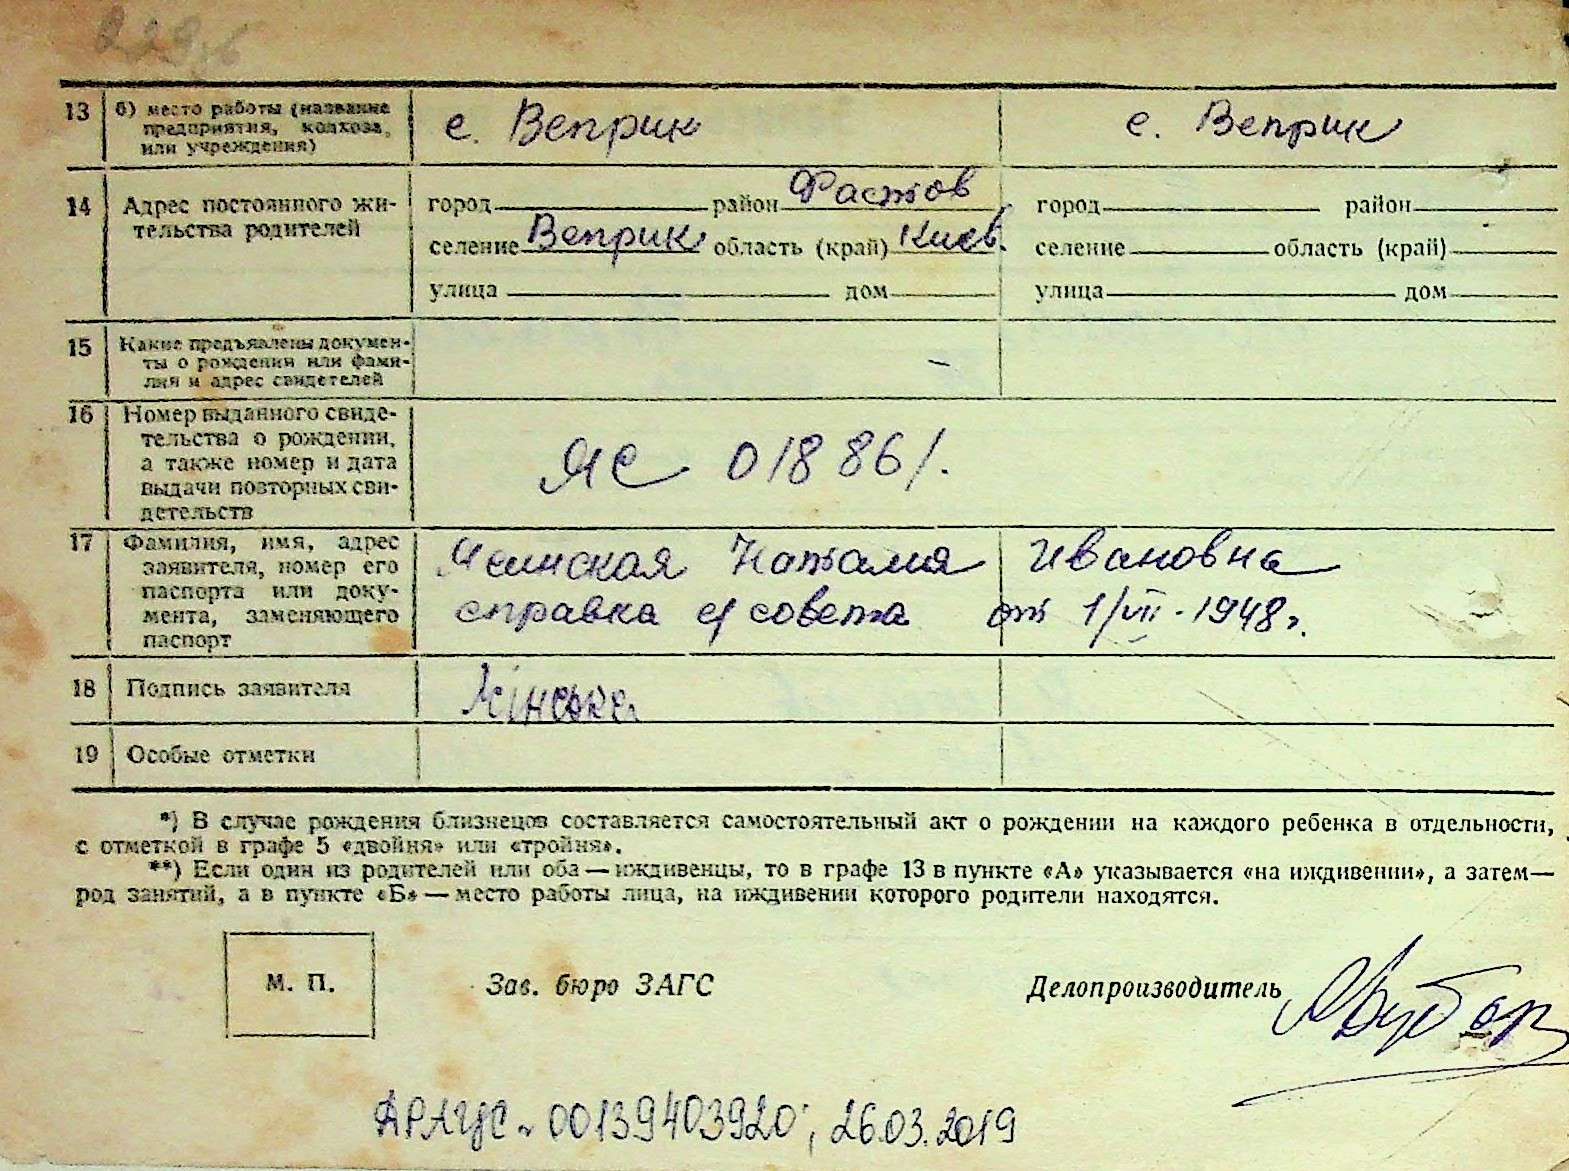 13 б) место работы (название предприятия, колхоза, или учреждения) с. Веприк с. Веприк
14 Адрес постоянного жи-
тельства родителей
город район Фастов город район
селение Веприк область (край) Киев. селение область (край)
улица дом улица дом
15 Какие предъявлены докумен-
ты о рождении или фами-
лия и адрес свидетелей –
16 Номер выданного свиде-
тельства о рождении,
а также номер и дата
выдачи повторных сви-
детельств
ЯС 018861.
17 Фамилия, имя, адрес
заявителя, номер его
паспорта или доку-
мента, заменяющего
паспорт
Ясинская Наталия Ивановна
справка с/совета от 1/VII-1948г.
18 Подпись заявителя
19 Особые отметки
*) В случае рождения близнецов составляется самостоятельный акт о рождении на каждого ребенка в отдельности,
с отметкой в графе 5 «двойня» или «тройня».
**) Если один из родителей или оба — иждивенцы, то в графе 13 в пункте «А» указывается «на иждивении», а затем—
род занятий, а в пункте «Б» — место работы лица, на иждивении которого родители находятся.
М. П. Зав. бюро ЗАГС Делопроизводитель
ДРАЦС 00139403920; 26.03.2019